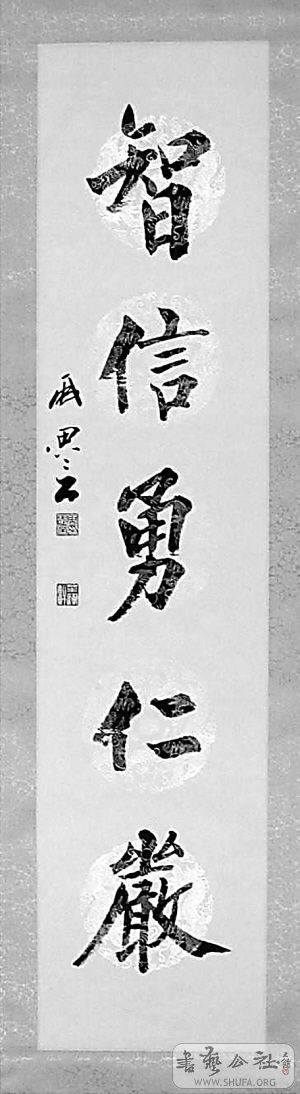 智信勇仁嚴
書藝公社
WWW.SHUFA.ORG